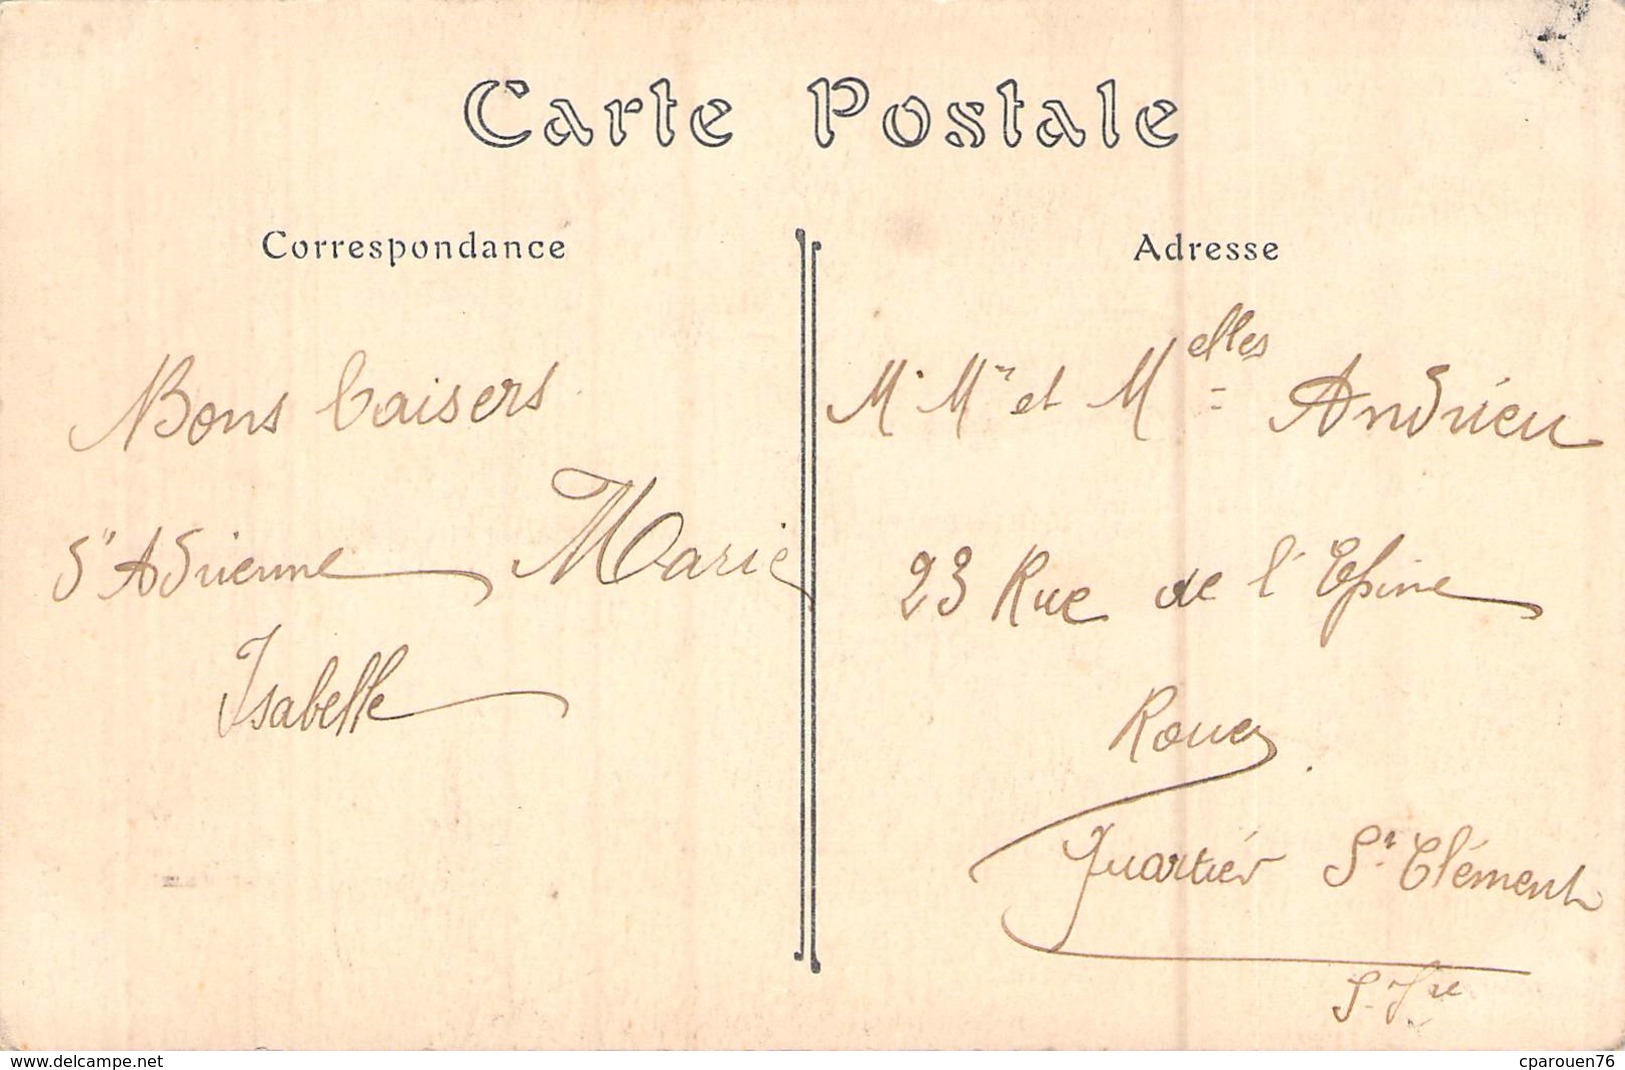 Carte Postale
Correspondance
Bons baisers
d'Adrienne Marie
Isabelle
Adresse
Mr Mme et Melles Andrieu
23 Rue de l'Epine
Rouen
Quartier St Clément
S. Ire
www.delcampe.net
cparouen76